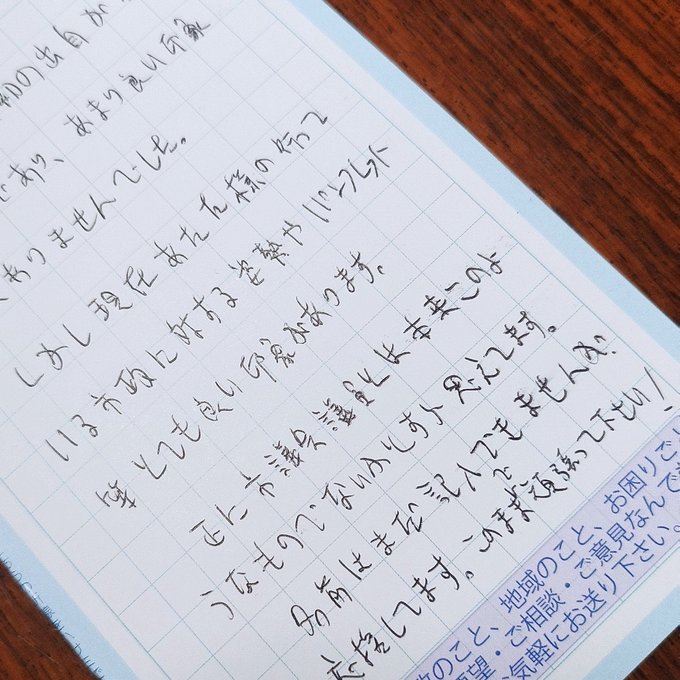 の出自が
であり、あまり良い印象
ありませんでした。
しかし現在あなた様の行って
いる市政に対する姿勢やパンフレット
等とても良い印象があります。
正に市議会議員とは本来このよ
うなものでないかとすら思えてます。
名前はまだ記入できませんが
応援してます。このまま頑張って下さい!
のこと、地域のこと、お困りご
望・ご相談・ご意見なんで
気軽にお送り下さい。